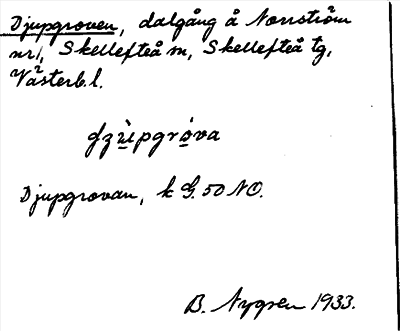 Djupgroven, dalgång å Norrström
nr 1, Skellefteå m, Skellefteå tg,
Västerb. l.
Djupgrovan, k G. 50 NO.
B. Nygren 1933.